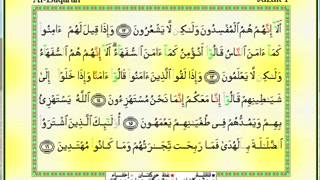 أَلَآ إِنَّهُمْ هُمُ ٱلْمُفْسِدُونَ وَلَـٰكِن لَّا يَشْعُرُونَ ۝١٢ وَإِذَا قِيلَ لَهُمْ ءَامِنُوا۟
كَمَآ ءَامَنَ ٱلنَّاسُ قَالُوٓا۟ أَنُؤْمِنُ كَمَآ ءَامَنَ ٱلسُّفَهَآءُ أَلَآ إِنَّهُمْ هُمُ ٱلسُّفَهَآءُ
وَلَـٰكِن لَّا يَعْلَمُونَ ۝١٣ وَإِذَا لَقُوا۟ ٱلَّذِينَ ءَامَنُوا۟ قَالُوٓا۟ ءَامَنَّا وَإِذَا خَلَوْا۟ إِلَىٰ
شَيَـٰطِينِهِمْ قَالُوٓا۟ إِنَّا مَعَكُمْ إِنَّمَا نَحْنُ مُسْتَهْزِءُونَ ۝١٤ ٱللَّهُ يَسْتَهْزِئُ
بِهِمْ وَيَمُدُّهُمْ فِى طُغْيَـٰنِهِمْ يَعْمَهُونَ ۝١٥ أُو۟لَـٰٓئِكَ ٱلَّذِينَ ٱشْتَرَوُا۟
ٱلضَّلَـٰلَةَ بِٱلْهُدَىٰ فَمَا رَبِحَت تِّجَـٰرَتُهُمْ وَمَا كَانُوا۟ مُهْتَدِينَ ۝١٦